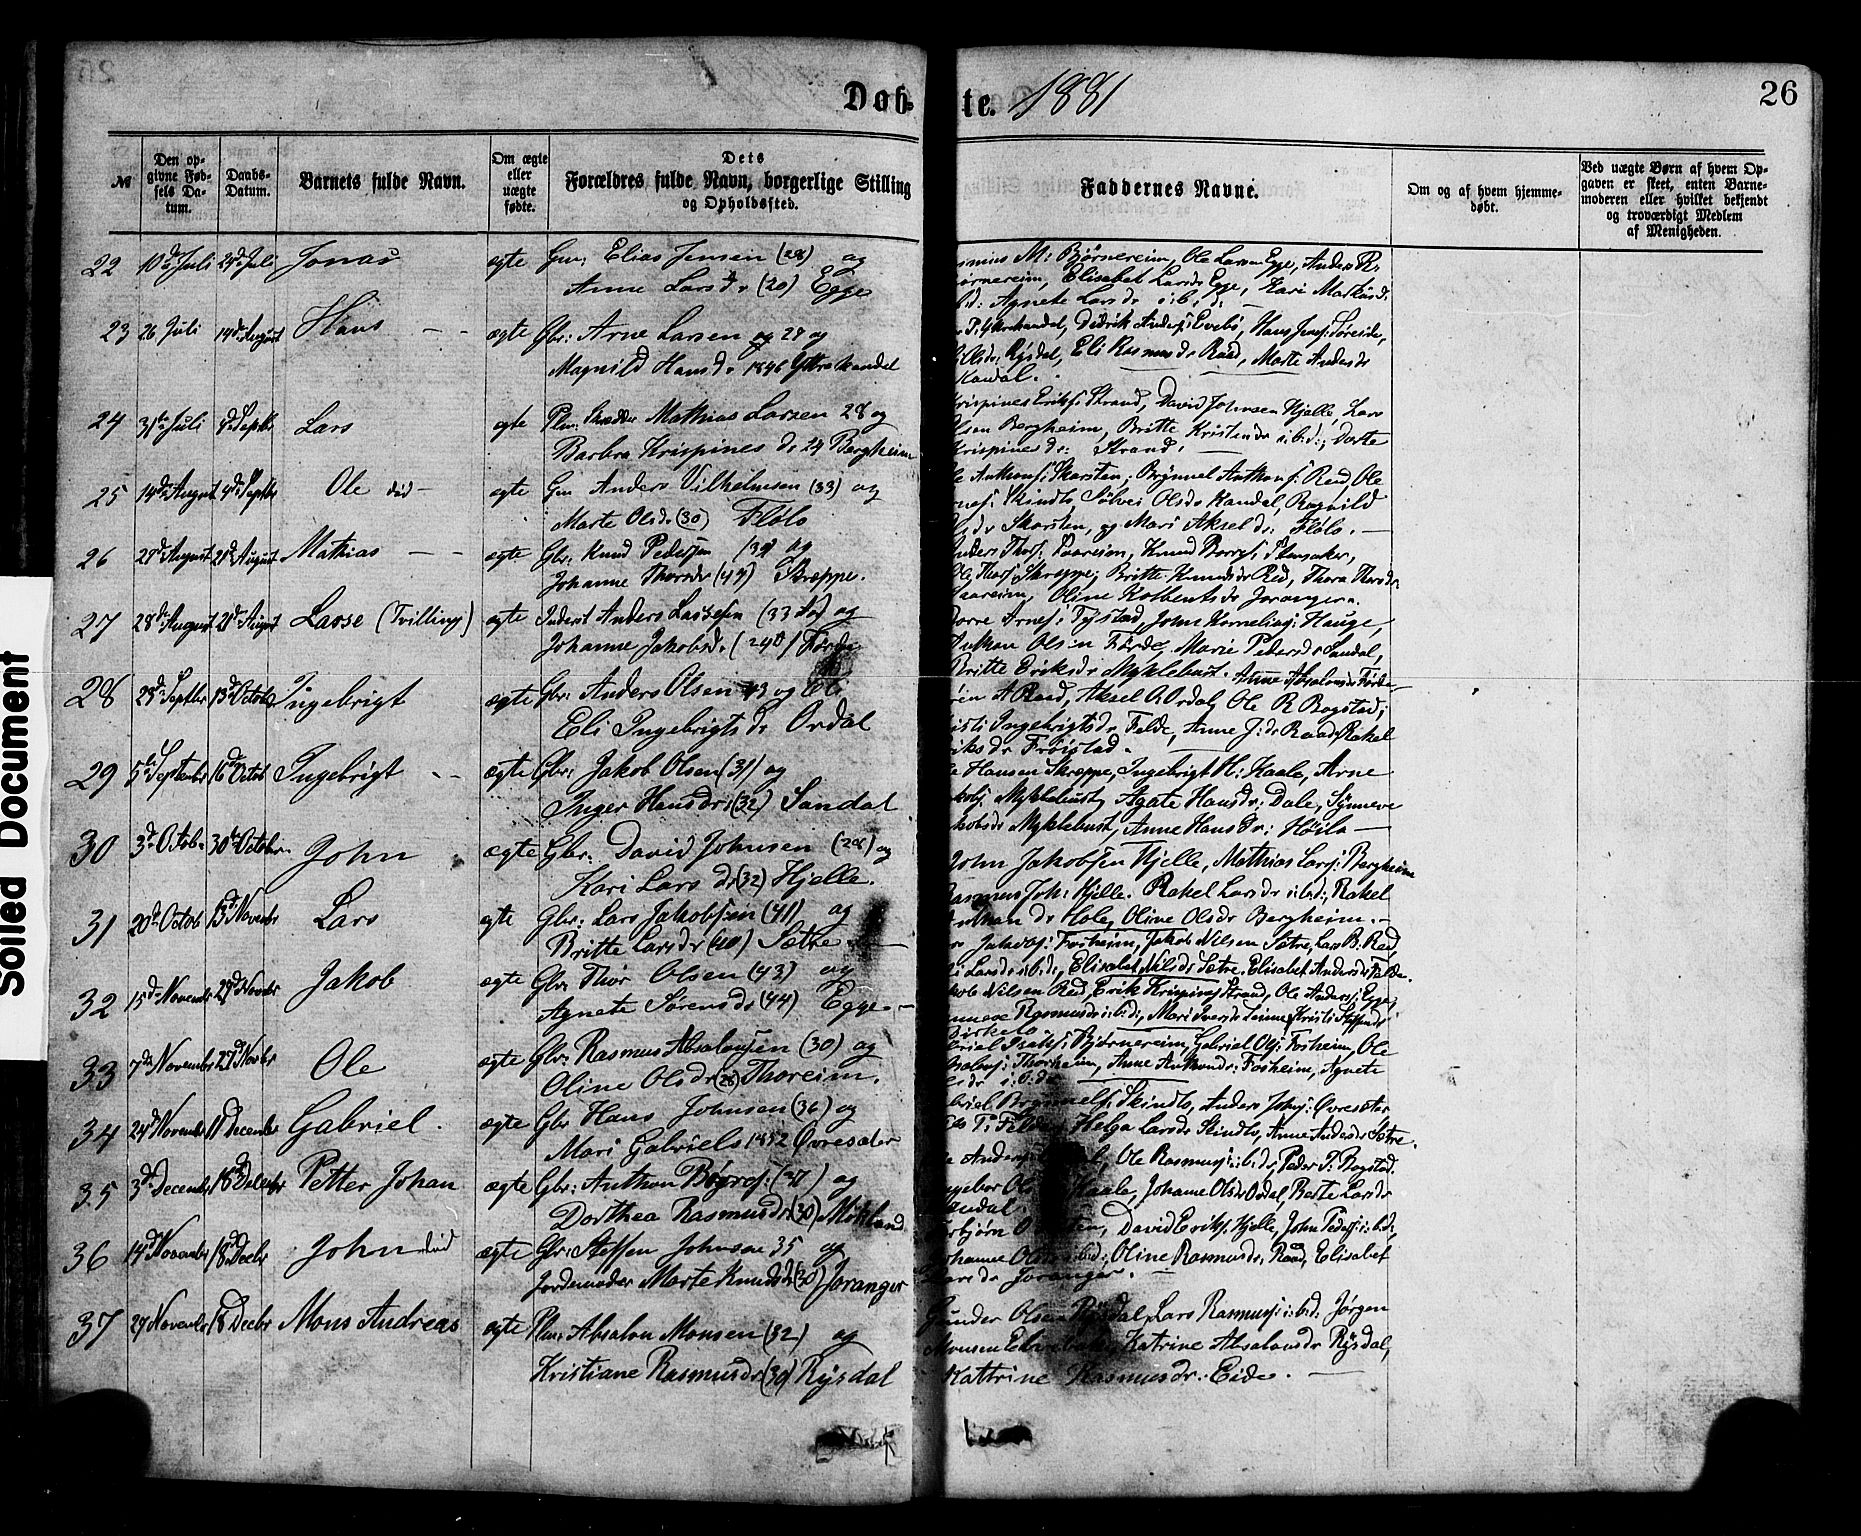 Døb-
te. 1881
26
№
Den op-
givne Fød-
sels Da-
tum.
Daabs-
Datum.
Barnets fulde Navn.
Om ægte
eller
uægte
fødte.
Dets
Forældres fulde Navn, borgerlige Stilling
og Opholdssted.
Faddernes Navne.
Om og af hvem hjemme-
døbt.
Ved uægte Børn af hvem Op-
gaven er skeet, enten Barne-
moderen eller hvilket bekjendt
og troværdigt Medlem
af Menigheden.
22 10de Juli 24de Juli Jonas ægte Gm: Elias Jensen (28) og
Anne Larsdr (20) Egge
M: Bjørnereim, Ole Larsen Egge, Anders R:
Bjørnereim, Elisabet Larsdr Egge, Kari Markusd:
Agnete Larsdr i.b.d.
23 26 Juli 14de August Hans ægte Gbr: Arne Larsen 27 og
Magnild Hansd. 1846 Ytrekandal
P: Ytrekandal, Didrik Anders: Evebø, Hans Jens: Søreide,
Rysdal, Eli Rasmusdr Raad, Marte Andersdr
Kandal.
24 31te Juli 4de Septbr Lars egte Plm: Skrædder Mathias Larsen 28 og
Barbra Krispinesdr 24 Bergheim
Krispines Eriks: Strand, David Johnsen Hjelle, Lars
Olsen Bergheim, Britte Kristendr i.b.d:, Dorte
Krispinesdr: Strand.
25 14de August 4de Septbr Ole død ægte Gm Anders Vilhelmsen (33) og
Marte Olsdr (30) Flølo
Anthons: Skarsten, Brynnel Anthons: Red, Ole
Skindlo, Sølvei Olsdr Kandal, Ragnild
Skarsten, og Mari Akseldr: Flølo.
26 21de August Mathias ægte Gbr: Knud Pedersen (39) og
Johanne Thorsdr (47) Skreppe.
Anders Thors: Paareim, Knud Borres: Stensaker,
Ole Thors: Skreppe; Britte Knudsdr Red, Thora Thorsdr
Paareim, Oline Kolbentsdr Joranger.
27 28de August 21de August Lasse (Tvilling) ægte Inderst Anders Lassesen (33) og
Johanne Jakobsd. Førde
Borre Arnes: Tystad, John Kornelius: Hauge,
Anthon Olsen Førde, Marie Pedersdr Sandal,
Britte Eriksdr Myklebust. Anne Absalonsdr Førde
28 23de Septbr 13de October Ingebrigt ægte Gbr: Anders Olsen 43 og
Eli Ingebrigtsdr Ordal
A Raad, Aksel A Ordal, Ole R Bogstad,
Kristi Ingebrigtsdr Felde, Anne J:dr Raad, Rakel
Eriksdr Frøistad.
29 5te September 16de Octob Ingebrigt ægte Gbr: Jakob Olsen (31) og
Inger Hansdr: (32) Sandal
Hansen Skreppe, Ingebrigt H: Kaale, Arne
Myklebust, Agate Hansdr: Dale, Synneve
Jakobsdr Myklebust, Anne Hansdr: Høilo
30 3de Octob. 30te Octobr. John ægte Gbr: David Johnsen (28) og
Kari Larsdr (32) Hjelle.
John Jakobsen Hjelle, Mathias Lars: Bergheim
Rasmus Joh: Hjelle. Rakel Larsdr i.b.d:, Rakel
Anthonsdr Hole, Oline Olsdr Bergheim.
31 20de Octob 13de Novembr Lars egte Gbr: Lars Jakobsen (41) og
Britte Larsdr (40) Sætre
Jakobs: Fosheim, Jakob Nilsen Sætre, Lars B: Red,
Larsdr i.b.d:, Elisabet Nilsdr Sætre. Elisabet Andersdr Felde.
32 15de Novembr 27de Novbr Jakob ægte Gbr: Thor Olsen (43) og
Agnete Sørensdr (44) Egge
Jakob Nilsen Red, Erik Krispins: Strand, Ole Anders: Egge,
Rasmusdr i.b.d:, Mari Iversdr Leivne, Kristi Steffensdr
Birkelo
33 7de Novembr 27de Novbr Ole ægte Gbr: Rasmus Absalonsen (30) og
Oline Olsdr (28) Thoreim.
Bjørnereim, Gabriel Ols: Fosheim, Ole
Absalons: Thoreim, Anne Anthonsdr: Fosheim, Agnete
i.b.d.
34 24de Novembr 11de December Gabriel. ægte Gbr Hans Johnsen (36) og
Mari Gabriels 1852 Øvresæter
Gabriel Brynnels: Skindlo, Anders Johns: Øvresæter
Helga Larsdr Skindlo, Anne Andersdr Sætre.
35 3de December 18de Decembr Petter Johan ægte Gbr: Anthon Børres: (37) og
Dorthea Rasmusdr (30) Mykland
Ole Rasmus: i.b.d:, Peder P: Bogstad.
Kaale, Johanne Olsdr Ordal, Berte Larsdr
Sandal.
36 14de Novembr 18de Decbr John død ægte Gbr: Steffen Johnsen 35 og
Jordemoder Marte Knudsd: (30) Joranger
Torbjørn, David Eriks: Hjelle, John Peders: i.b.d:
Johanne Olsdr i.b.d:, Oline Rasmusdr, Raad, Elisabet
Larsdr Joranger.
37 27 Novembr 18 Decbr Mons Andreas ægte Plm: Absalon Monsen (32) og
Kristiane Rasmusdr (39) Rysdal
Gunder Olsen Rysdal, Lars Rasmus: i.b.d: Jørgen
Monsen, Katrine Absalonsdr Rysdal,
Kattrine Rasmusdr. Eide.
Soiled Document